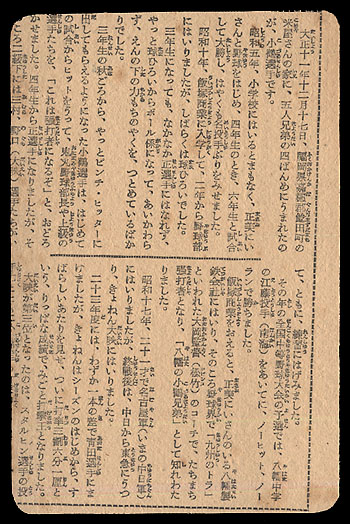 大正十一年十二月十七日、福岡県嘉穂郡飯田町の
米屋さんの家に、五人兄弟の四ばんめにうまれたの
が、小鶴選手です。
昭和五年、小学校にはいるとまもなく、正美にい
さんと野球をはじめ、四年生のとき、六年生と試合
して大勝し、はやくも名投手ぶりをみせました。
昭和十年、飯塚商業に入学して、二年から野球部
にはいりましたが、しばらくは球ひろいでした。
三年生になっても、なかなか正選手にはなれず、
やっと球ひろいからボール係になって、あいかわら
ず、えんの下の力もちのやくを、つとめているばか
りでした。
三年生の終ごろから、やっとピンチ・ヒッターに
出してもらえるようになった小鶴選手は、はじめて
の試合からヒットをうって、東光野球部長や上級の
選手たちを、「これは強打者になるぞ」と、おどろ
かせました。四年生から正選手になりましたが、そ
のころ二級上には
て、ともに、練習にはげみました。
その年の全国中等野球大会の予選では、八幡中学
の江藤投手（南海）をあいてに、ノーヒット、ノー
ランで勝ちました。
飯塚商業を卒えると、正美にいさんのいる八幡製
鉄会社にはいり、そのころ野球界で"九州のトラ"
といわれた大岡監督（松竹）のコーチで、たちまち
強打者となり、「八幡の小鶴兄弟」として知れわた
りました。
昭和十七年、二十一才で名古屋軍（いまの中日軍）
にはいりましたが、終戦後は、中日から東急にうつ
り、きょねん大映にはいりました。
二十三年度には、わずか一本の差で青田選手にま
けましたが、きょねんはシーズンのはじめから、す
ばらしいあたりを見せ、ついに打率三割六分一厘と
いう、りっぱな成績で、みごと打撃王となりました。
大映が第三位となったのは、スタルヒン選手の投